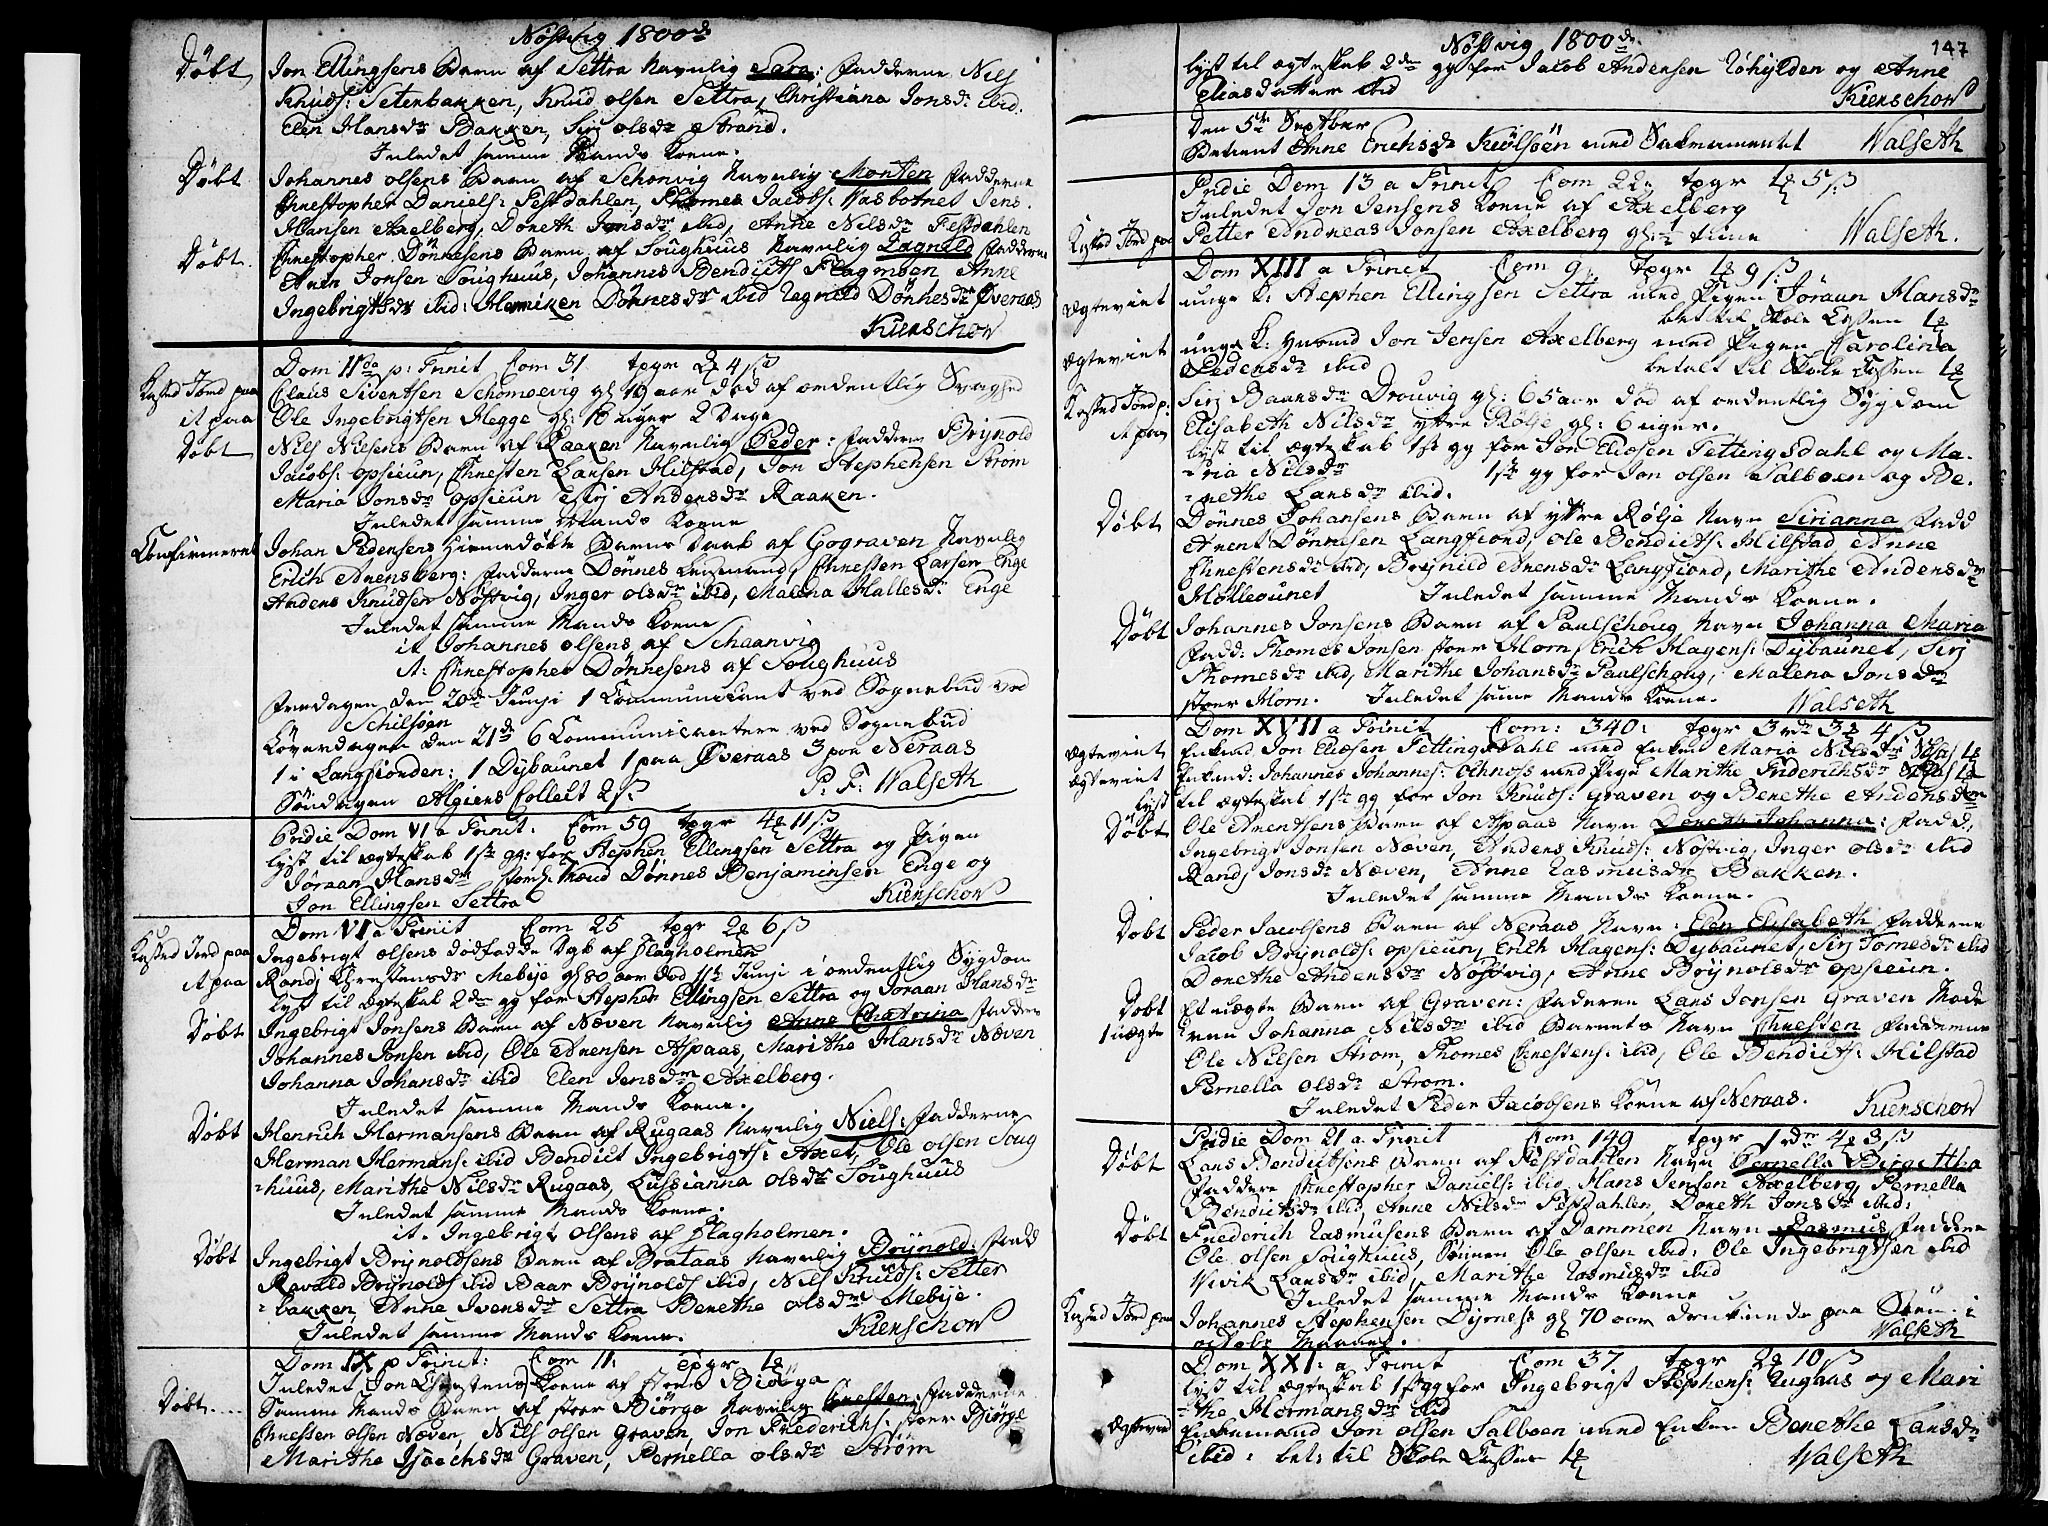 Nøstvig 1800de
Døbt Jon Ellingsens Barn af Settra Navnlig Sara: Fadderne Nils
Knuds: Setenbakken, Knud olsen Settra, Christiana Jonsdr ibid.
Elen Hansdr Bakken, Siri olsdr Strand.
Inledet samme Mands Kone.
Døbt Johannes olsens Barn af Schonvig Navnlig Morten Fadderne
Christopher Daniels: Festdahlen, Thomes Jacobs: Vasbotnet Jens
Hansen Axelberg, Doreth Jonsdr ibid, Anne Nilsdr Festdahlen
Døbt Christopher Dønnesens Barn af Soughuus Navnlig Ragnild Fadderne
Aren Jonsen Soughuus, Johannes Bendicts Flagmoen Anne
Ingebrigtsdr ibid: Hemiken Dønnesdr ibid Ragnild Dønnesdr Øveraas
Kierschow
Dom 11te p: Trinit Com 31 tpgr 2 4 ß
Kasted Jord paa Claus Sivertsen Schomoevig gl: 19 aar død af ordentlig Svaghed
it paa Ole Ingebrigtsen Hegge gl: 16 uger 2 Dage
Døbt Nils Nilsens Barn af Raaken Navnlig Peder: Faddere Brynold
Jacobs: opsieun, Christen Larsen Hilstad, Jon Stephensen Strøm
Maria Jonsdr opsieun Siri Andersdr Raaken.
Inledet samme Mands Kone
Confirmeret Johan Pedersens hiemedøbte Barns Daab af Gograven Navnlig
Erich Arensberg: Fadderne Dønnes Christen Larsen Enge
Anders Knudsen Nøstvig, Inger olsdr ibid, Malena Hallesdr Enge
Inledet samme Mands Kone
it Johannes olsens af Schaanvig
it: Christopher Dønnesens af Soughuus
Fredagen den 20de Junji 1 Communicant ved Sognebud ved
Schilsøen
Løverdagen den 21de 6 Communicantere ved Sognebud
1 i Langfiorden: 1 Dybaunet 1 paa Øveraas 3 paa Neraas
Søndagen Algiers Collect 2 ß: P: T: Walseth
Pridie Dom VI a Trinit: Com 59 tpgr 4 11 ß
lyst til ægteskab 1ste gg: for Stephen Ellingsen Settra og Pigen
Jøraan Hansdr Dønnes Benjaminsen Enge og
Jon Ellingsen Settra Kierschow
Dom VI a Trinit Com 25 tpgr 2 6 ß
Kasted Jord paa Ingebrigt olsens dødfødte af Flagholmen
it paa Randj Christensdr Mebøe gl 80 aar død 11te Junji i ordentlig Sygdom
lyst til ægteskab 2den gg for Stephen Ellingsen Settra og Jøraan Hansdr
Døbt Ingebrigt Jonsens Barn af Næven Navnlig Anne Chatrina Faddere
Johannes Jonsen ibid, Ole Arensen Aspaas, Marithe Hansdr Næven
Johanna Johansdr ibid Elen Jensdr Axelberg.
Inledet samme Mands Kone.
Døbt Henrich Hermansens Barn af Rugaas Navnlig Niels: Fadderne
Herman Hermans: ibid Bendict Ingebrigts: Axet, Ole olsen Soug
=huus, Marithe Nilsdr Rugaas, Lussianna olsdr Soughuus
Inledet samme Mands Kone.
it. Ingebrigt olsens af Flagholmen.
Døbt Ingebrigt Brynoldsens Barn af Brataas Navnlig Brynold: Fadd
Ravald Brynolds ibid Baar Brynolds ibid, Nils Knuds: Setter
=bakken, Anne Iversdr Settra Berethe olsdr Mebøe.
Inledet samme Mands Kone. Kierschow
Dom IX p Trinit: Com 11: tpgr 1
Inledet Jon Christens Kone af store Biørga
Døbt Samme Mands Barn af stor Biørge Navnlig Christen: Fadderne
Christen olsen Næven, Nils olsen Graven, Jon Friderichs: stoer Biørge
Marithe Isachsdr Graven, Pernella olsdr Strøm
Nøstvig 1800de. 147
lyst til ægteskab 2den gg for Jacob Andersen Røhylden og Anne
Eliasdatter ibid Kierschow
Den 5te Septber
Betient Anne Erichsdr Kiølsøen med Sakramentet Walseth
Pridie Dom 13 a Trinit Com 22 tpgr 1 5 ß
Inledet Jon Jensens Kone af Axelberg
Kasted Jord paa Petter Andreas Jonsen Axelberg gl: 1 time Walseth.
Dom XIII a Trinit Com 9: tpgr 1 9 ß
Ægteviet unge K: Stephen Ellingsen Settra med Pigen Jøraan Hansdr
bet til Skole Cassen 1
Ægteviet unge K: Jon Jensen Axelberg med Pigen Carolina
Pedersdr ibid betalt til Skole Cassen 1
Kasted Jord p: Siri Baarsdr Drouvig gl: 65 aar død af ordentlig Sygdom
it paa Elisabeth Nilsdr yttre Rølje gl: 6 uger.
lyst til ægteskab 1ste gg for Jon Eliasen Tettingsdahl og Ma-
=ria Nilsdr 1ste gg for Jon olsen Salboen og Be-
=rethe Larsdr ibid.
Døbt Dønnes Johansens Barn af yttre Rølje Navn Sirianna Fadd
Arent Dønnesen Langfiord, Ole Bendicts: Hilstad Anne
Christensdr ibid, Brynild Arensdr Langfiord, Marithe Andersdr
Mølleounet Inledet samme Mands Kone.
Døbt Johannes Jonsens Barn af Paulschoug Navn Johanna Maria
Fadd: Thomes Jonsen stoer Horn, Erich Hagens: Dybaunet, Siri
Thomesdr ibid, Marithe Johansdr Paulschoug, Malena Jonsdr
stoer Horn. Inledet same Mands Kone. Walseth
Dom XVII a Trinit Com: 340: tpgr 3 rdr 3 4 ß
Ægteviet Enkemd Jon Eliasen Tettingsdahl med Enken Maria Nilsdr
Ægteviet Enkemd: Johannes Johannes: ochnoss med Pige Marithe Friderichsdr
Lyst til ægteskab 1ste gg for Jon Knuds: Graven og Berethe Andersdr
Døbt Ole Arentsens Barn af Aspaas Navn Doreth Johanna: Fadd,
Ingebrig Jonsen Næven, Anders Knuds: Nøstvig, Inger olsdr ibid
Randj Jonsdr Næven, Anne Rasmusdr Bakken.
Inledet samme Mands Kone.
Døbt Peder Jacobsens Barn af Neraas Navn: Elen Elisabeth Fadderne
Jacob Brynolds: opsieun, Erich Hagens: Dybaunet, Siri Tomesdr ibid
Dorethe Andersdr Nøstvig, Anne Brynolsdr opsieun.
Døbt Et uægte Barn af Graven: Faderen Lars Jonsen Graven Mode
1 uægte =ren Johanna Nilsdr ibid Barnets Navn Christen Fadderne
Ole Nilsen Strøm, Thomes Christens: ibid, Ole Bendicts: Hilstad
Pernella olsdr Strøm.
Inledet Peder Jacobsens Kone af Neraas. Kierschow
Pridie Dom 21 a Trinit Com 149 tpgr 1 rdr 4 3 ß
Døbt Lars Bendictsens Barn af Festdahlen Navn Pernella Birgetha
Faddere Christopher Daniels: ibid Hans Jensen Axelberg Pernella
Bendictsdr ibid, Anne Nilsdr Festdahlen, Doreth Jonsdr ibid:
Døbt Friderich Rasmusens Barn af Dammen Navn Rasmus Faddere
Ole olsen Soughuus, Sønnen Ole olsen ibid: Ole Ingebrigtsen ibid
Vivik Larsdr ibid, Marithe Rasmusdr ibid
Inledet samme Mands Kone
Kasted Jord paa Johannes Stephensen Dyrness gl 70 aar druknede paa Søen i
octobr Maaned. Walseth
Dom XXI: a Trinit Com 37. tpgr 2 10 ß
lyst til ægteskab 1ste gg for Ingebrigt Stephens: Rugaas og Mari
=the Hermansdr ibid
Ægteviet Enkemand Jon olsen Salboen med Enken Berethe Larsdr
ibid: bet: til Skole Cassen 1 Walseth